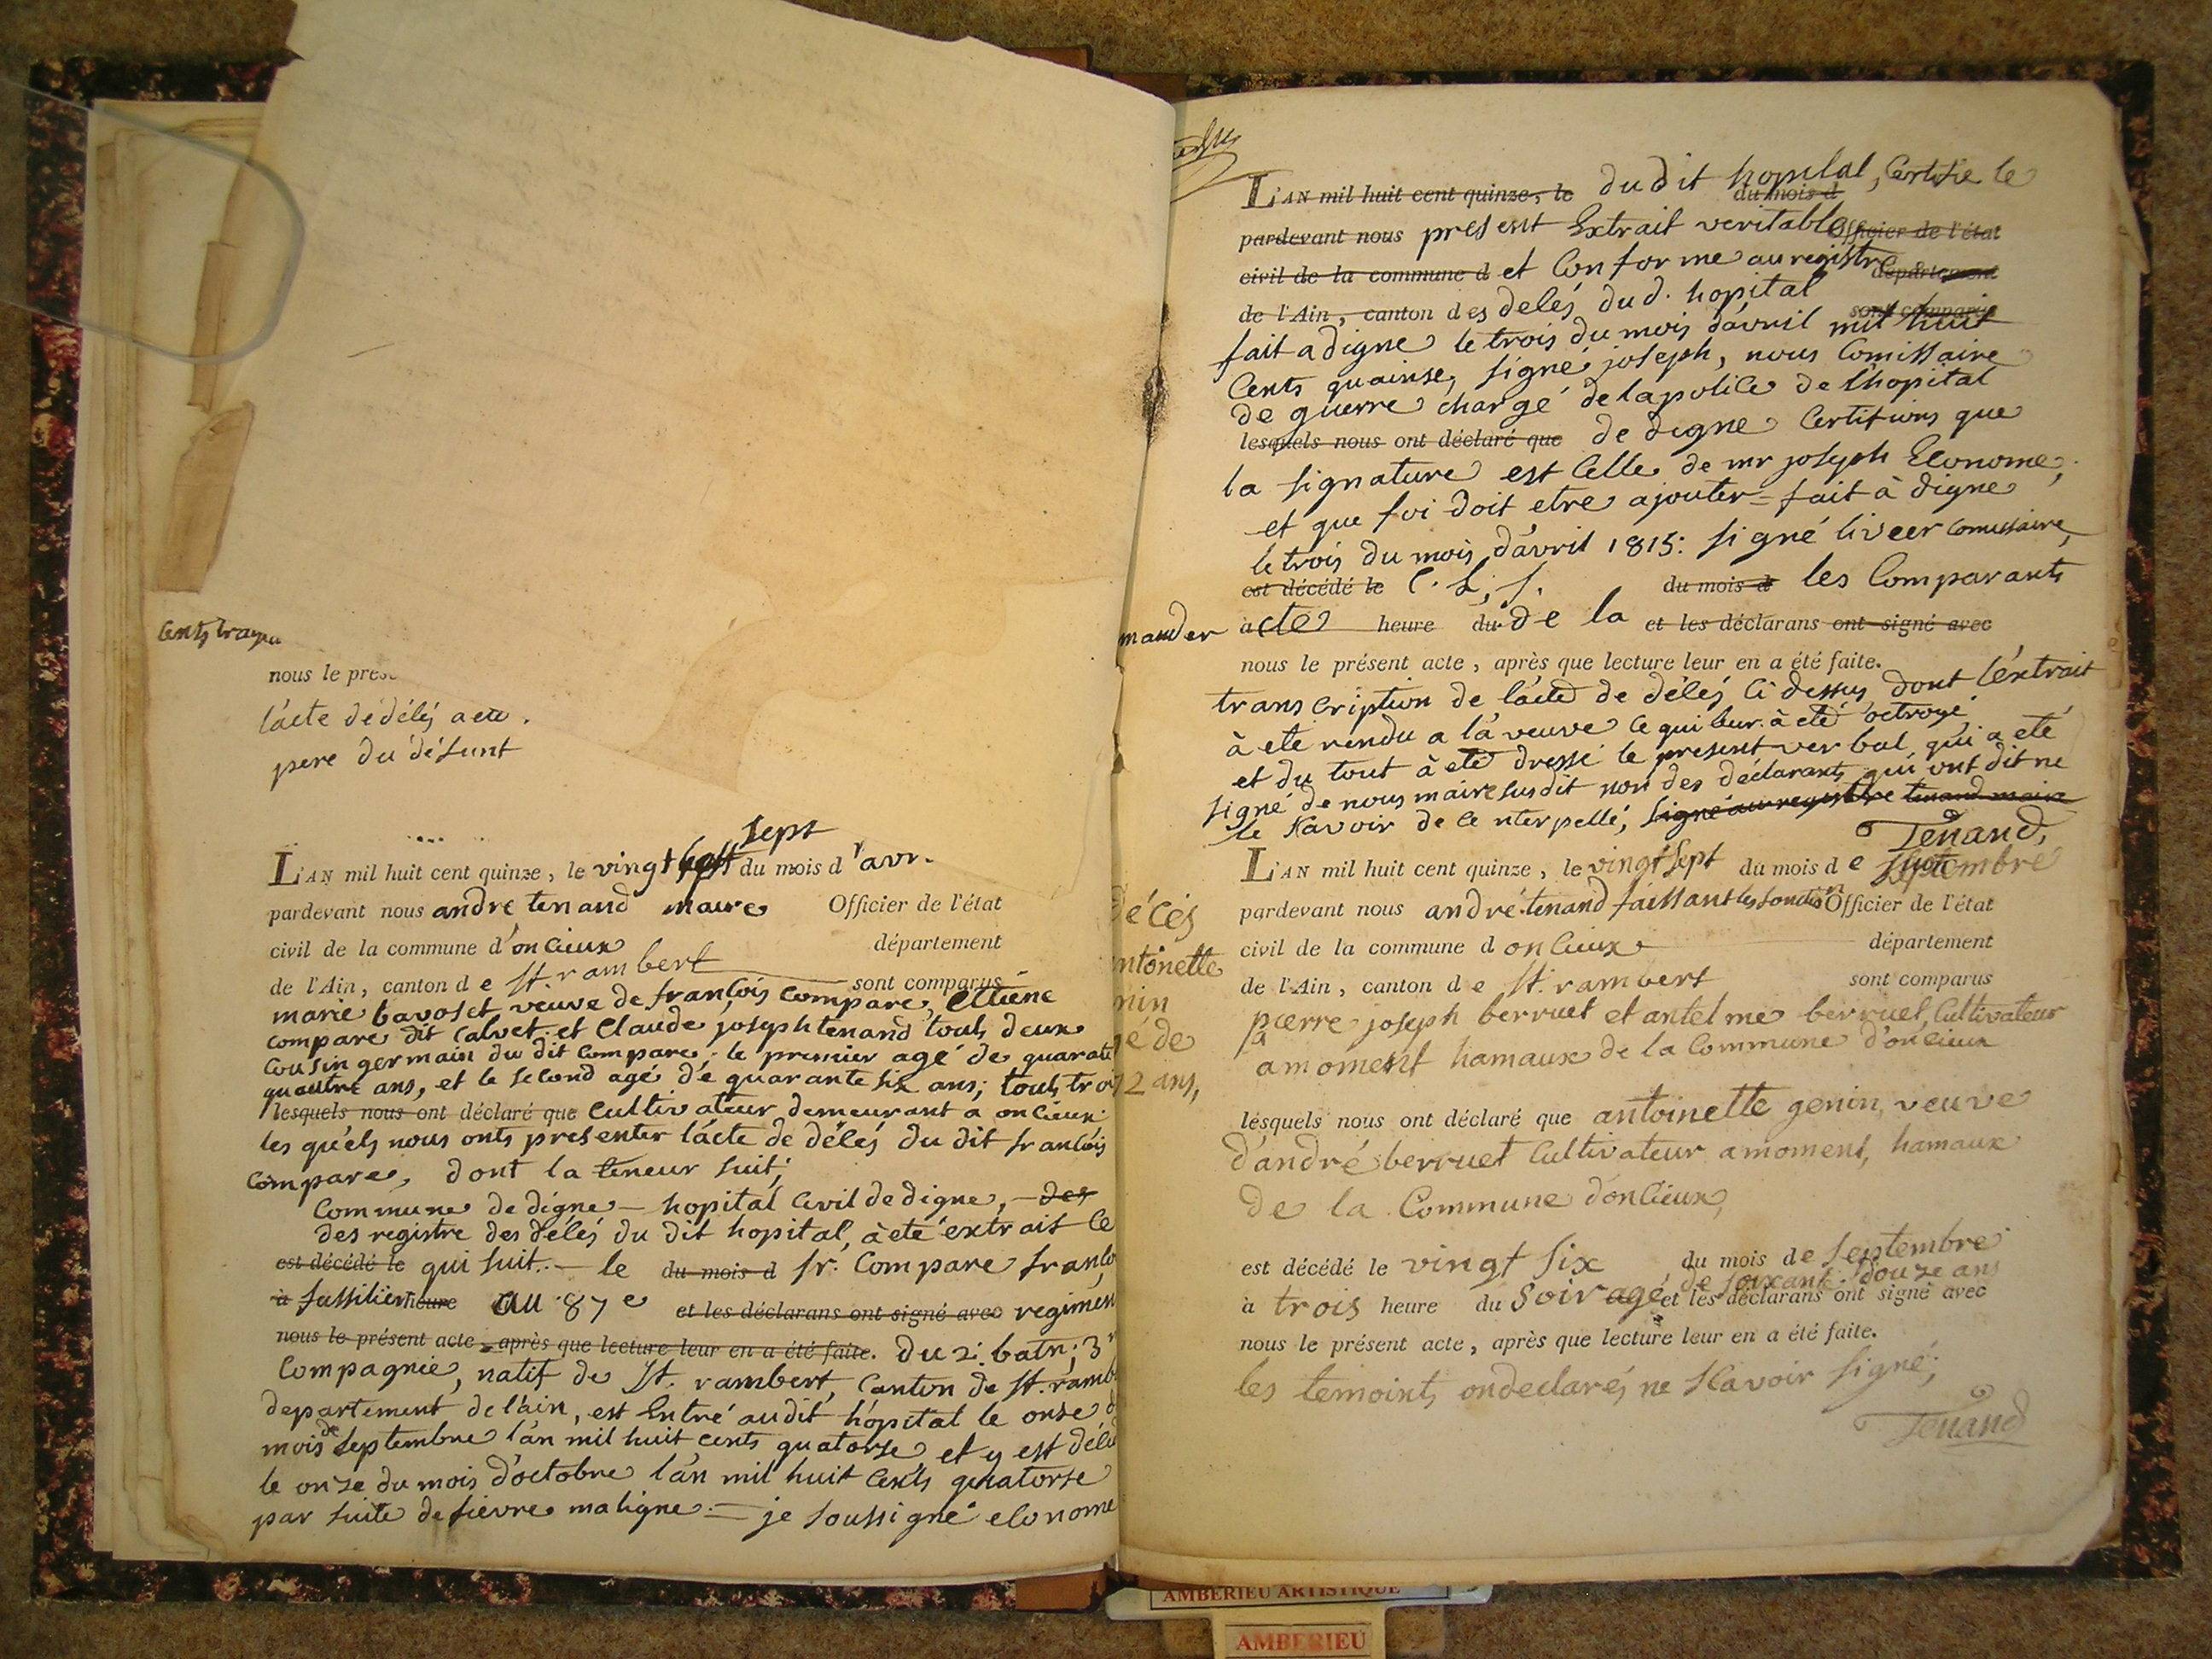 Cents
nous le pres
l'acte dedélés a ete.
pere du défunt
sept
L'AN mil huit cent quinze, le vingt sept du mois d'avr.
pardevant nous andre tenand maire Officier de l'état
civil de la commune d'oncieux département
de l'Ain, canton de St. rambert sont comparus
marie bavoset veuve de françois compare, Etiene
compare dit Calvet et Claude joseph tenand touts deux
Cousin germain du dit Compare, le premier agé de quarate
quautre ans, et le second agé de quarante six ans; touts troi
lesquels nous ont déclaré que Cultivateur demeurant a oncieux
les quels nous onts presenter l'acte de délés du dit francois
Compare, dont la teneur suit;
Commune de digne - hopital Civil de digne, - des
des registre des délés du dit hopital, à eté extrait le
est décédé le qui suit. - le du mois d sr. Compare franco
à fussilier heure au 87e et les déclarans ont signé avec regimen
nous le présent acte, après que lecture leur en a été faite. du 2. batn; 3
Compagnie, natif de St. rambert, Canton de St. ramb
departement de l'ain, est Entré au dit hopital le onse d
mois de septembre l'an mil huit cents quatorse et y est déléd
le onze du mois d'octobre l'an mil huit Cents quatorse
par suite de fievre maligne - je soussigné elonome
L'AN mil huit cent quinze, le du dit hopital, Certifie le
du mois d
pardevant nous present Extrait veritable Officier de l'état
civil de la commune d et Conforme au registre département
de l'Ain, canton des delés du d. hopital sont comparus
fait a digne le trois du mois d'avril mil huit
Cents quainse, signé joseph, nous Comissaire
de guerre chargé de la police de l'hopital
lesquels nous ont déclaré que de digne Certifions que
la signature est Celle de mr joseph Elonome,
et que foi doit etre ajouter - fait à digne
le trois du mois d'avril 1815: signé liveer comissaire,
est décédé le C. L. S. du mois d les Comparants
mander acte heure du de la et les déclarans ont signé avec
nous le présent acte, après que lecture leur en a été faite.
transcription de l'acte de délés ci dessus dont l'extrait
à eté rendu a la veuve ce qui leur à eté octroyé
et du tout à eté dressé le present verbal qui a eté
signé de nous maire susdit non des déclarants qui ont dit ne
le scavoir de ce nterpellé, signé au registre tenand maire
Tenand,
décés
ntoinette
nin
é de
72 ans,
L'AN mil huit cent quinze, le vingt sept du mois de septembre
pardevant nous andré tenand faissant les Officier de l'état
civil de la commune d oncieux département
de l'Ain, canton de St. rambert sont comparus
pierre joseph berruet et antelme berruet, Cultivateur
a moment hamaux de la Commune d'oncieux
lesquels nous ont déclaré que antoinette genin, veuve
d'andré berruet Cultivateur a moment, hamaux
de la Commune d'oncieux,
est décédé le vingt six du mois de septembre
à trois heure du soir agé de soixante douze ans et les déclarans ont signé avec
nous le présent acte, après que lecture leur en a été faite.
les temoints ondeclarés ne scavoir signé;
Tenand
AMBERIEU ARTISTIQUE
AMBERIEU